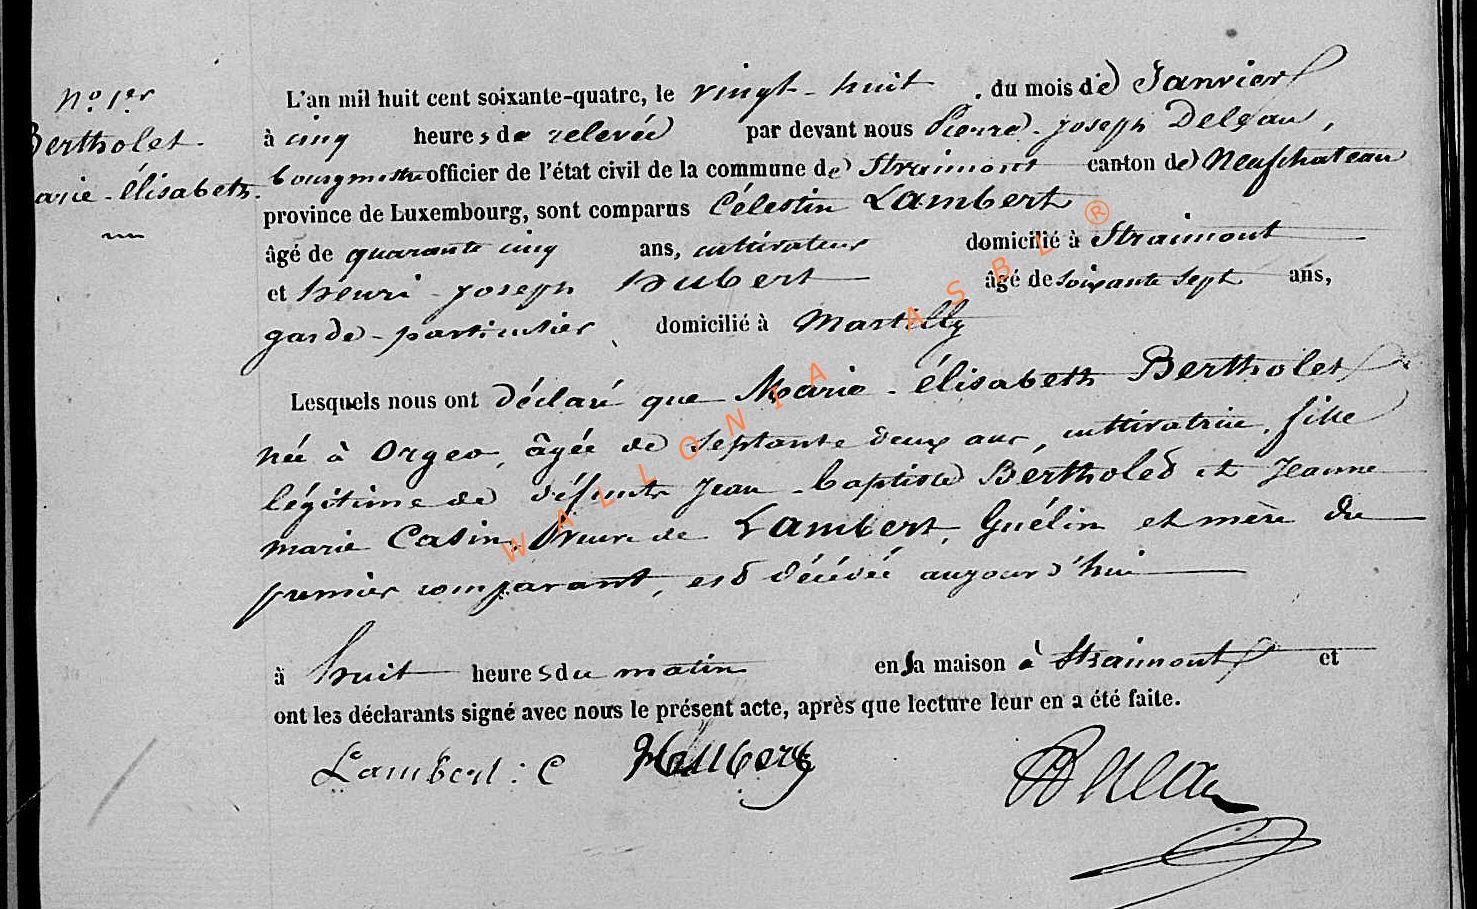 N° 1er
Bertholet
arie-élisabeth.
L'an mil huit cent soixante-quatre, le vingt-huit du mois de Janvier
à cinq heures de relevée par devant nous Pierre-Joseph Deleau,
bourgmestre officier de l'état civil de la commune de Straimont canton de Neufchateau
province de Luxembourg, sont comparus Célestin Lambert
âgé de quarante cinq ans, cultivateur domicilié à Straimont
et henri-Joseph Hubert âgé de soixante sept ans,
garde-particulier domicilié à Martilly
Lesquels nous ont déclaré que Marie-élisabeth Bertholet
née à Orgeo, âgée de septante deux ans, cultivatrice, fille
légitime de défunts Jean-baptiste Bertholet et Jeanne
marie Casin, Veuve de Lambert, Guélin et mère du
premier comparant, est décédée aujourd'hui
à huit heures du matin en sa maison à Straimont et
ont les déclarants signé avec nous le présent acte, après que lecture leur en a été faite.
Lambert : C Hubert Deleau
WALLONIA ASBL ®